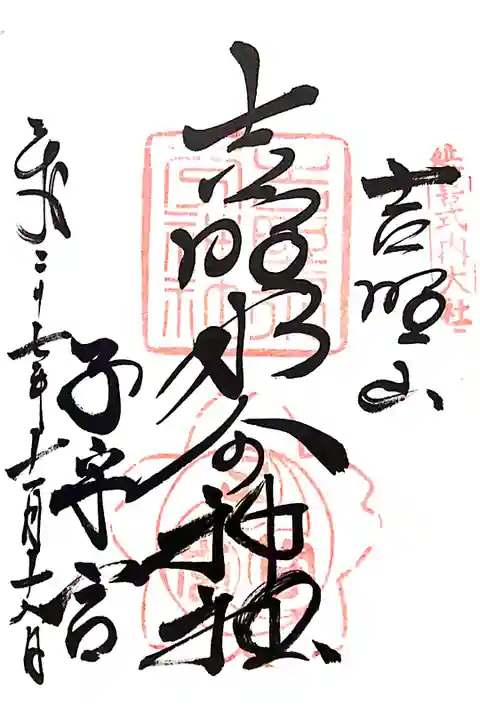 延喜式内大社
吉野山
吉野水分神社
子守宮
平成二十七年十一月十八日